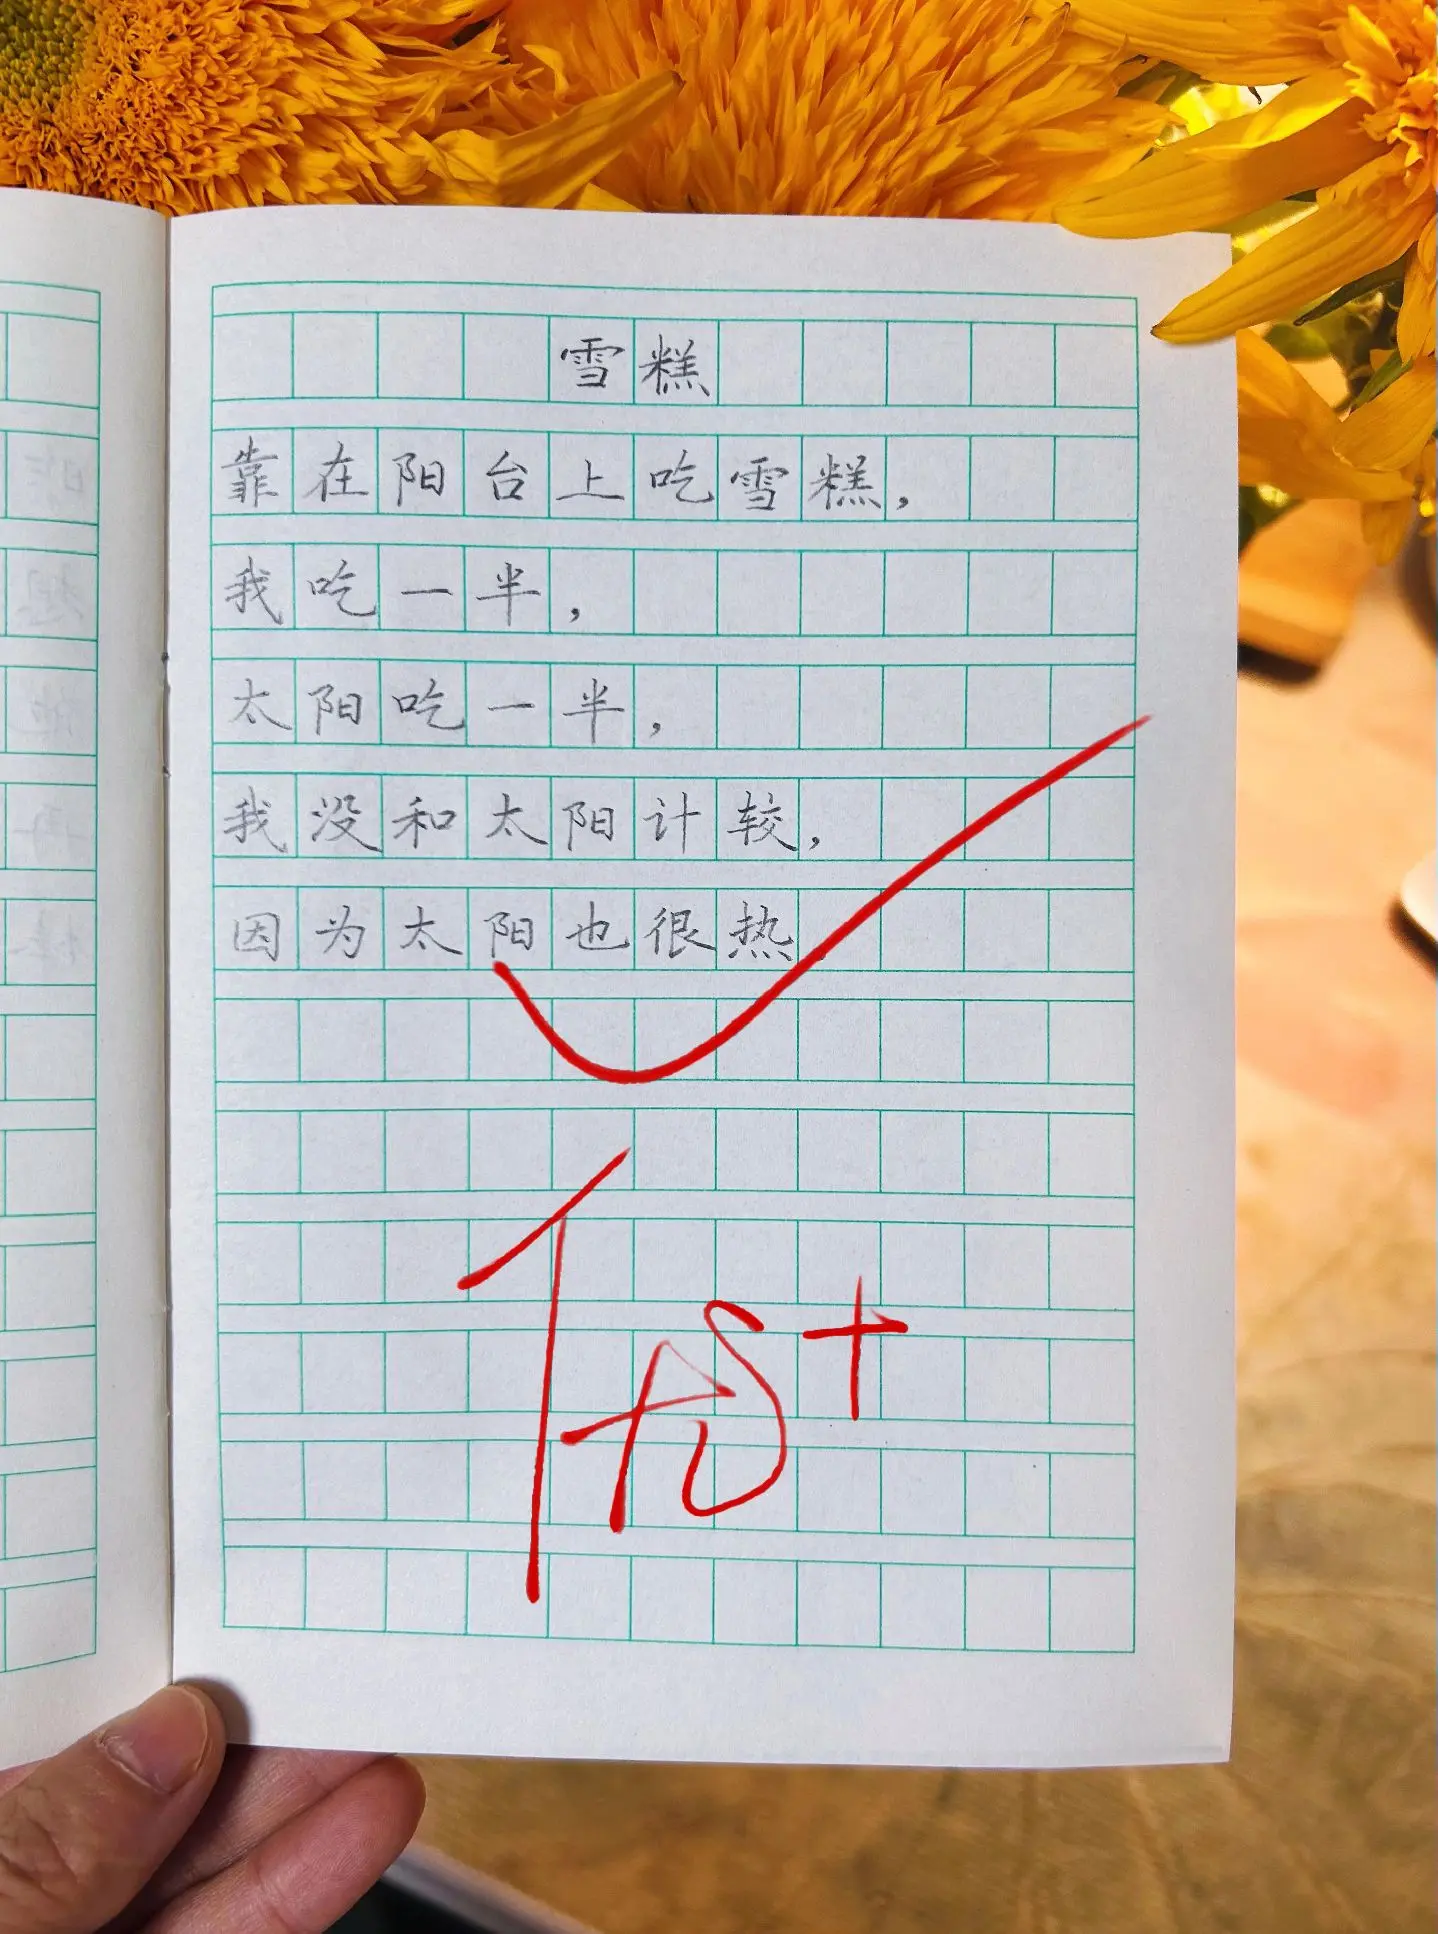 雪糕
靠在阳台上吃雪糕，
我吃一半，
太阳吃一半，
我没和太阳计较，
因为太阳也很热
优+